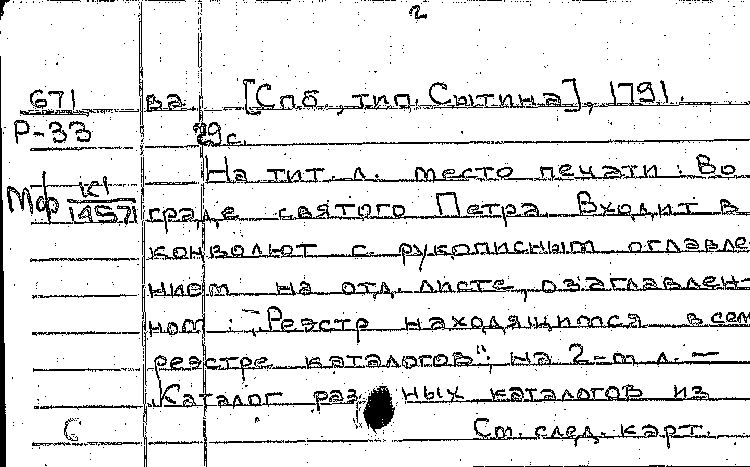 2
671 ва. [Спб, тип. Сытина], 1791.
Р-33 29 с.
На тит. л. место печати: Во
Мф К1/14571 граде святого Петра. Входит в
конволют с рукописным оглавле
нием на отд. листе, озаглавлен-
ном: „Реэстр находящимся в сем
реэстре каталогов"; на 2-м л. —
„Каталог раз ных каталогов из
6 См. след. карт.